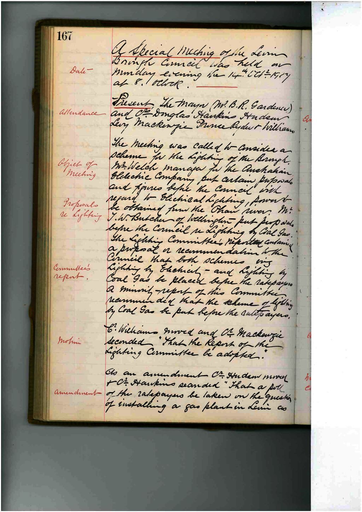 167
A Special Meeting of the Levin
Borough Council was held on
Date
Monday evening the 14th
at 8. o'clock.
Present The Mayor (Mr B.R. Gardener)
Attendance
and Crs Douglas Hankins Hudson
Levy Mackenzie Prouse William
The Meeting was called to consider a
Objects of
Meeting
scheme for the lighting of the Borough.
Mr Welch manager for the Australian
Electric Company put certain proposals
and figures before the Council with
Proposals
re Lighting
regard to Electrical Lighting, power to
be obtained from the Ohau river. Mr
J.W. Butcher of Wellington put proposals
before the Council re Lighting by Coal Gas
The Lighting Committee's report contained
a proposal or recommendation to the
Council that both schemes
Committee's
report.
Lighting by Electrical - and Lighting by
Coal Gas be placed before the ratepayers
A minority report of this Committee
recommended that the scheme of lighting
by Coal Gas be put before the ratepayers.
Cr Williams moved and Cr Mackenzie
Motion
seconded "That the Report of the
Lighting Committee be adopted."
As an amendment Cr Hudson moved
& Cr Hankins seconded "That a poll
Amendment
of the ratepayers be taken on the question
of installing a gas plant in Levin as